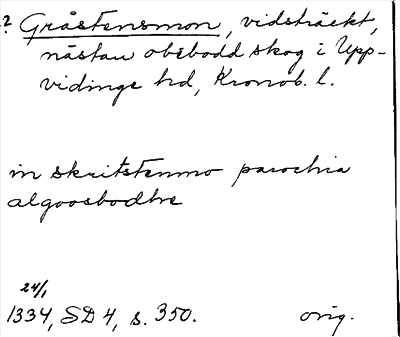 ? Gråstensmon, vidsträckt,
nästan obebodd skog i Upp-
vidinge hd, Kronob. l.
in skritstenmo parochia
algoosbodhe
24/1
1334, SD 4, s. 350. orig.